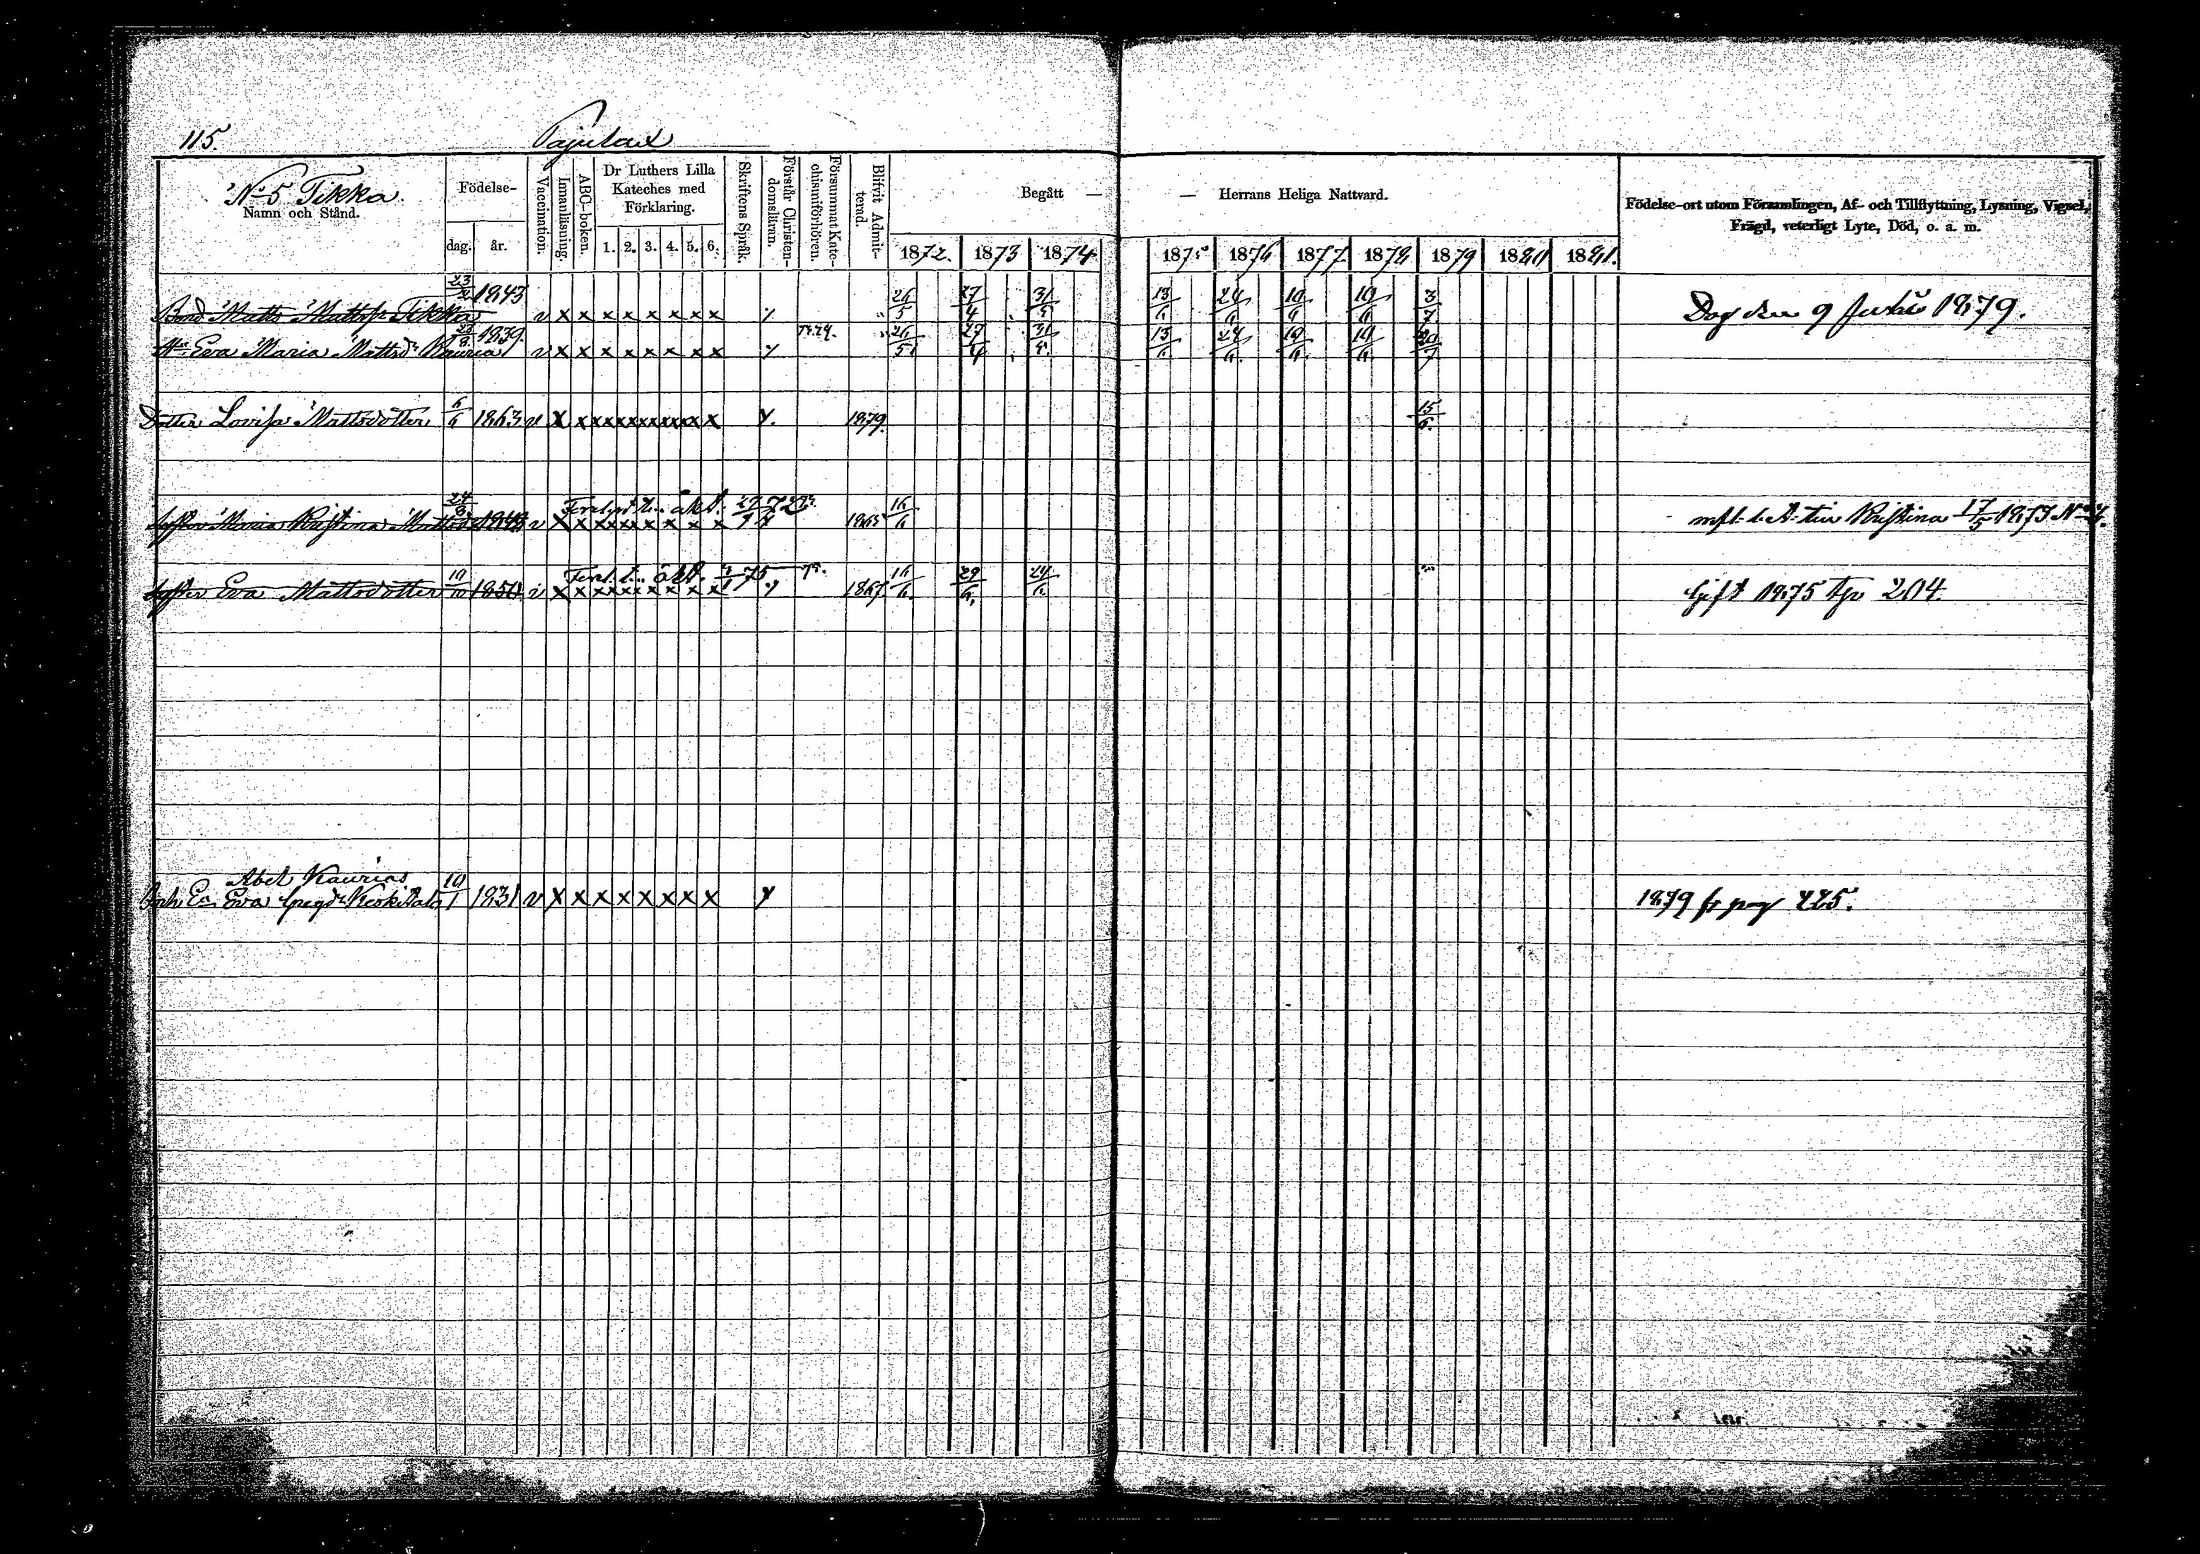 115.
Pajulax
N:o 5 Tikka.
Namn och Stånd.
Födelse-
dag. år.
Vaccination.
Innanläsning.
ABC-boken.
Dr Luthers Lilla
Kateches med
Förklaring.
1. 2. 3. 4. 5. 6.
Skriftens Språk.
Förstår Christen-
domsläran.
Försummat Kate-
chismiförhören.
Blifvit Admit-
terad.
Begått — — Herrans Heliga Nattvard.
1872. 1873 1874 1875 1876 1877 1878 1879 1880 1881.
Födelse-ort utom Församlingen, Af- och Tillflyttning, Lysning, Vigsel,
Frägd, veterligt Lyte, Död, o. a. m.
Bond Matts Matts Tikka 23/2 1843 v x x x x x x x x 26/5 27/4 31/5 13/6 24/6 10/6 10/6 3/7 Dog den 9 Juli 1879.
Eva Maria Mattsdr Kauria 1839. v x x x x x x x x 26/5 27/4 31/5 13/6 24/6 10/6 10/6 20/7
Dotter Lovisa Mattsdotter 6/6 1863 v x x x x x x x x x x x x 1879. 15/6.
Syster Maria Kristina Mattsdr 24/6 v x x x x x x x x x 16/6 Kristina 17/5 1873
Syster Eva Mattsdotter 10/10 1850 v x x x x x x x x x 75 1867 16/6. 29/6. 24/6. Gift 1875 204.
Abel Kaurias
Enk. Eva 10/1 1831 v x x x x x x x x 1879 fr pag 225.